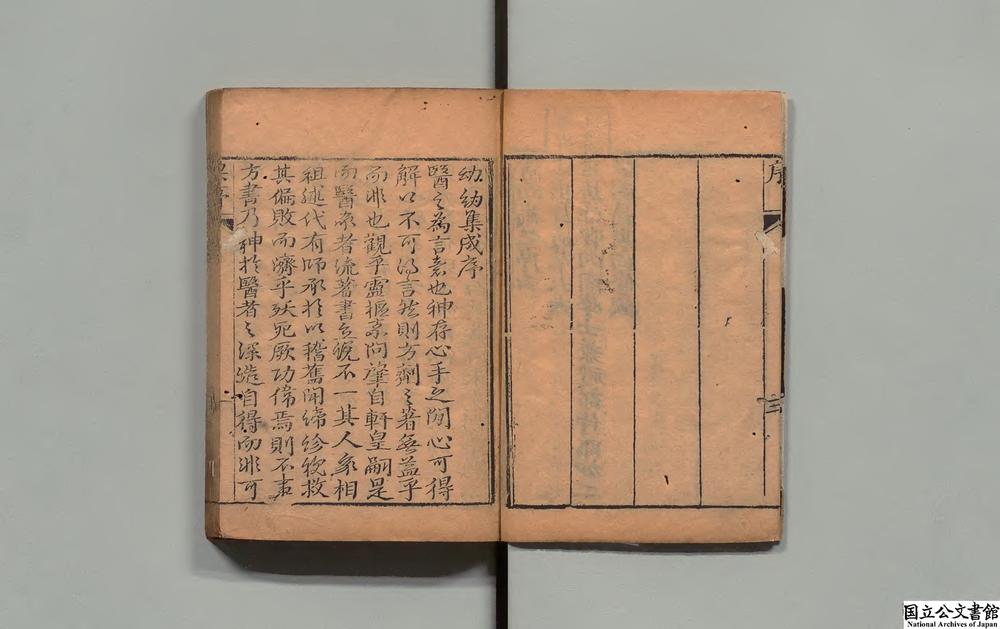 序
三
幼幼集成序
醫之為言意也神存心手之閒心可得
解口不可得言然則方劑之著無益乎
而非也觀乎靈樞素問肇自軒皇嗣是
而醫家者流著書立說不一其人家相
祖述代有師承於以稽舊聞締診救
其偏敗而濟乎夭死厥功偉焉則不事
方書乃神於醫者之深造自得而非可
国立公文書館
National Archives of Japan